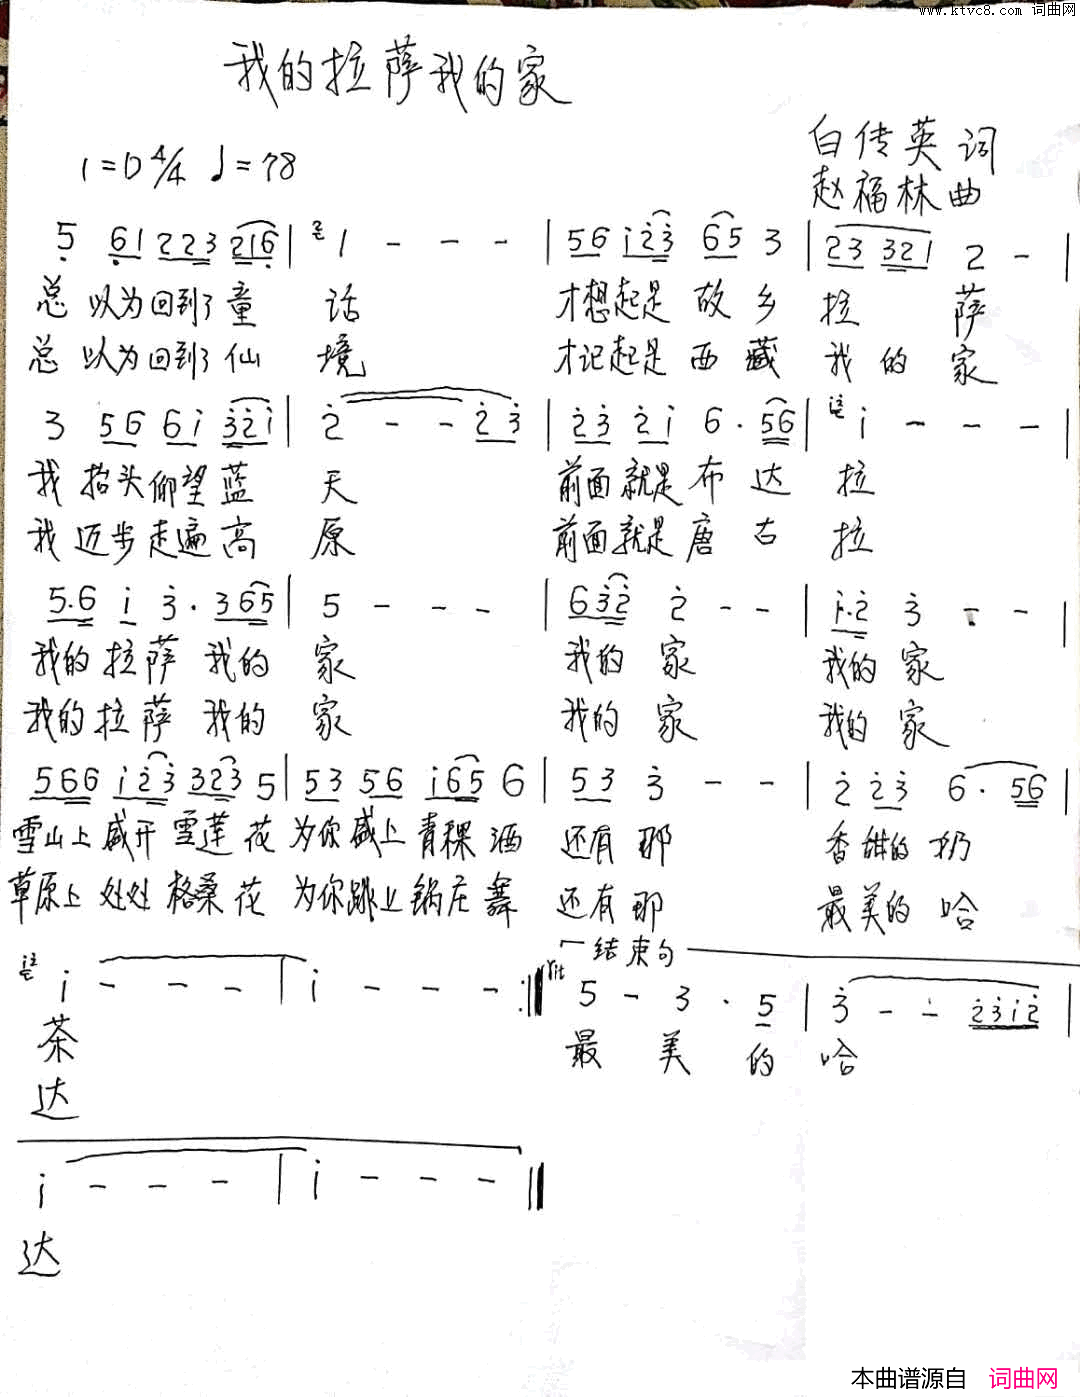 www.ktvc8.com 词曲网
我的拉萨我的家
白传英 词
1=D 4/4 ♩=78
赵福林 曲
5 61 223 216 | 2 1 - - - | 56 i23 65 3 | 23 321 2 - |
总 以为回到了童 话 才想起是 故 乡 拉 萨
总 以为回到了仙 境 才记起是 西 藏 我 的 家
3 56 6i 32i | 2 - - 23 | 23 2i 6 . 56 | i - - - |
我 抬头仰望蓝 天 前面就是布 达 拉
我 迈步走遍高 原 前面就是唐 古 拉
5.6 i 3 . 365 | 5 - - - | 632 2 - - | i.2 3 - - |
我的拉萨 我的 家 我的 家 我的 家
我的拉萨 我的 家 我的 家 我的 家
566 i23 323 5 | 53 56 i65 6 | 53 3 - - | 2 23 6 . 56 |
雪山上盛开雪莲花 为你盛上青稞酒 还有那 香甜的奶
草原上处处格桑花 为你跳上锅庄舞 还有那 最美的 哈
结束句
i - - - | i - - - :‖ rit 5 - 3 . 5 | 3 - - 23i2 |
茶 最 美 的 哈
达
i - - - | i - - - ‖
达
本曲谱源自 词曲网